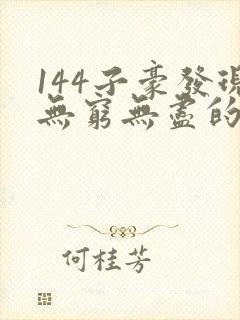 144子豪發現
無窮無盡的
何桂芳